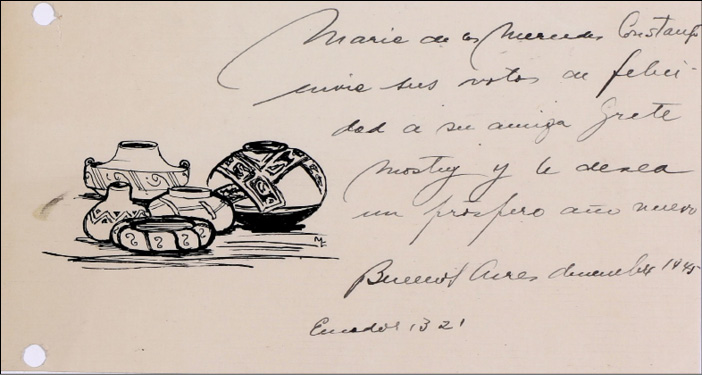 Maria de las Mercedes Constanzó
envia sus votos de felici-
dad a su amiga Grete
Mostny y le desea
un prospero año nuevo
Buenos Aires diciembre 1945
Ecuador 1321
MC